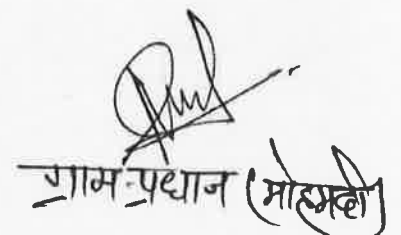 ग्राम-प्रधान (मोहमदी)